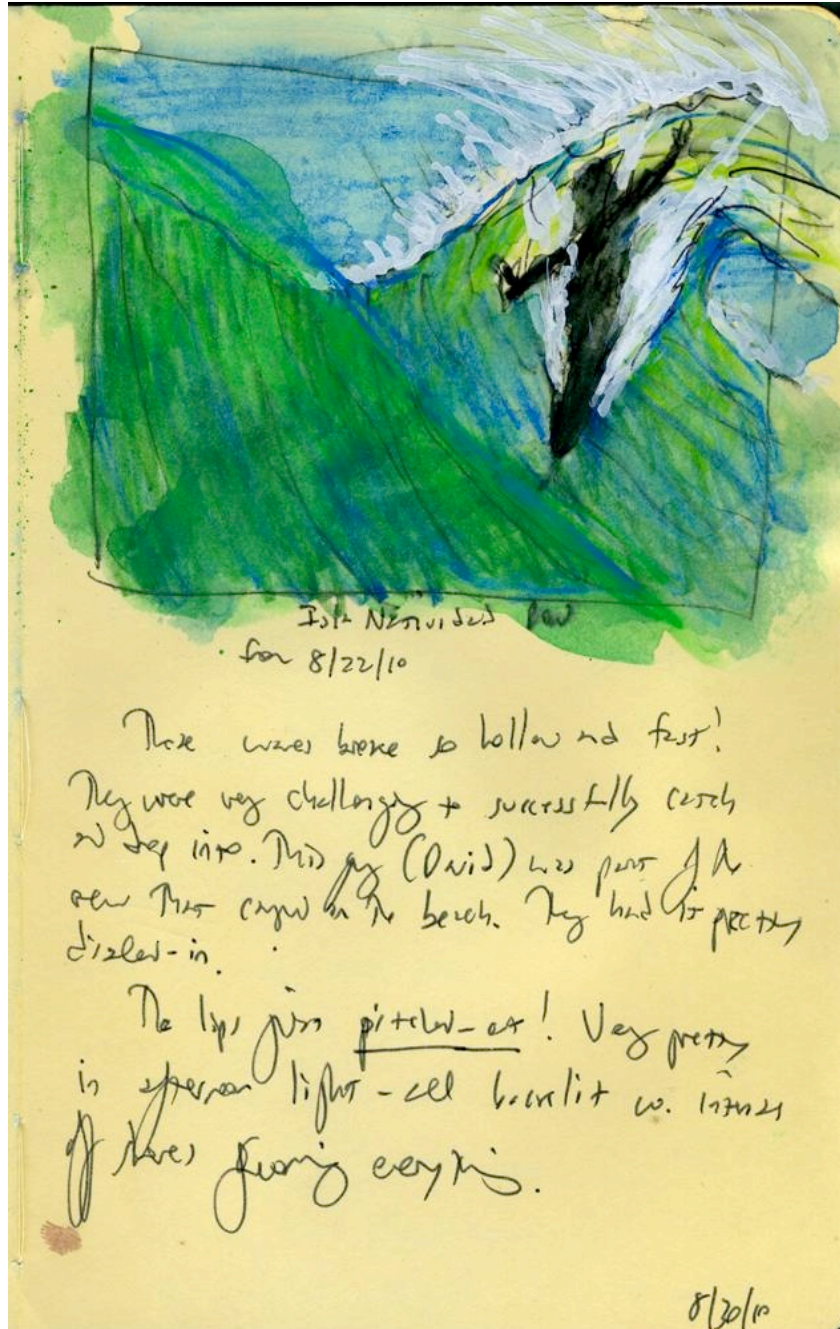 Isla Natividad
for 8/22/10
These waves broke so hollow and fast!
They were very challenging to successfully catch
and drop into. This guy (David) was part of the
crew that camped on the beach. They had it pretty
dialed-in.
The lips just pitched-out! Very pretty
in afternoon light - all backlit w. intense
offshores grooming everything.
8/30/10